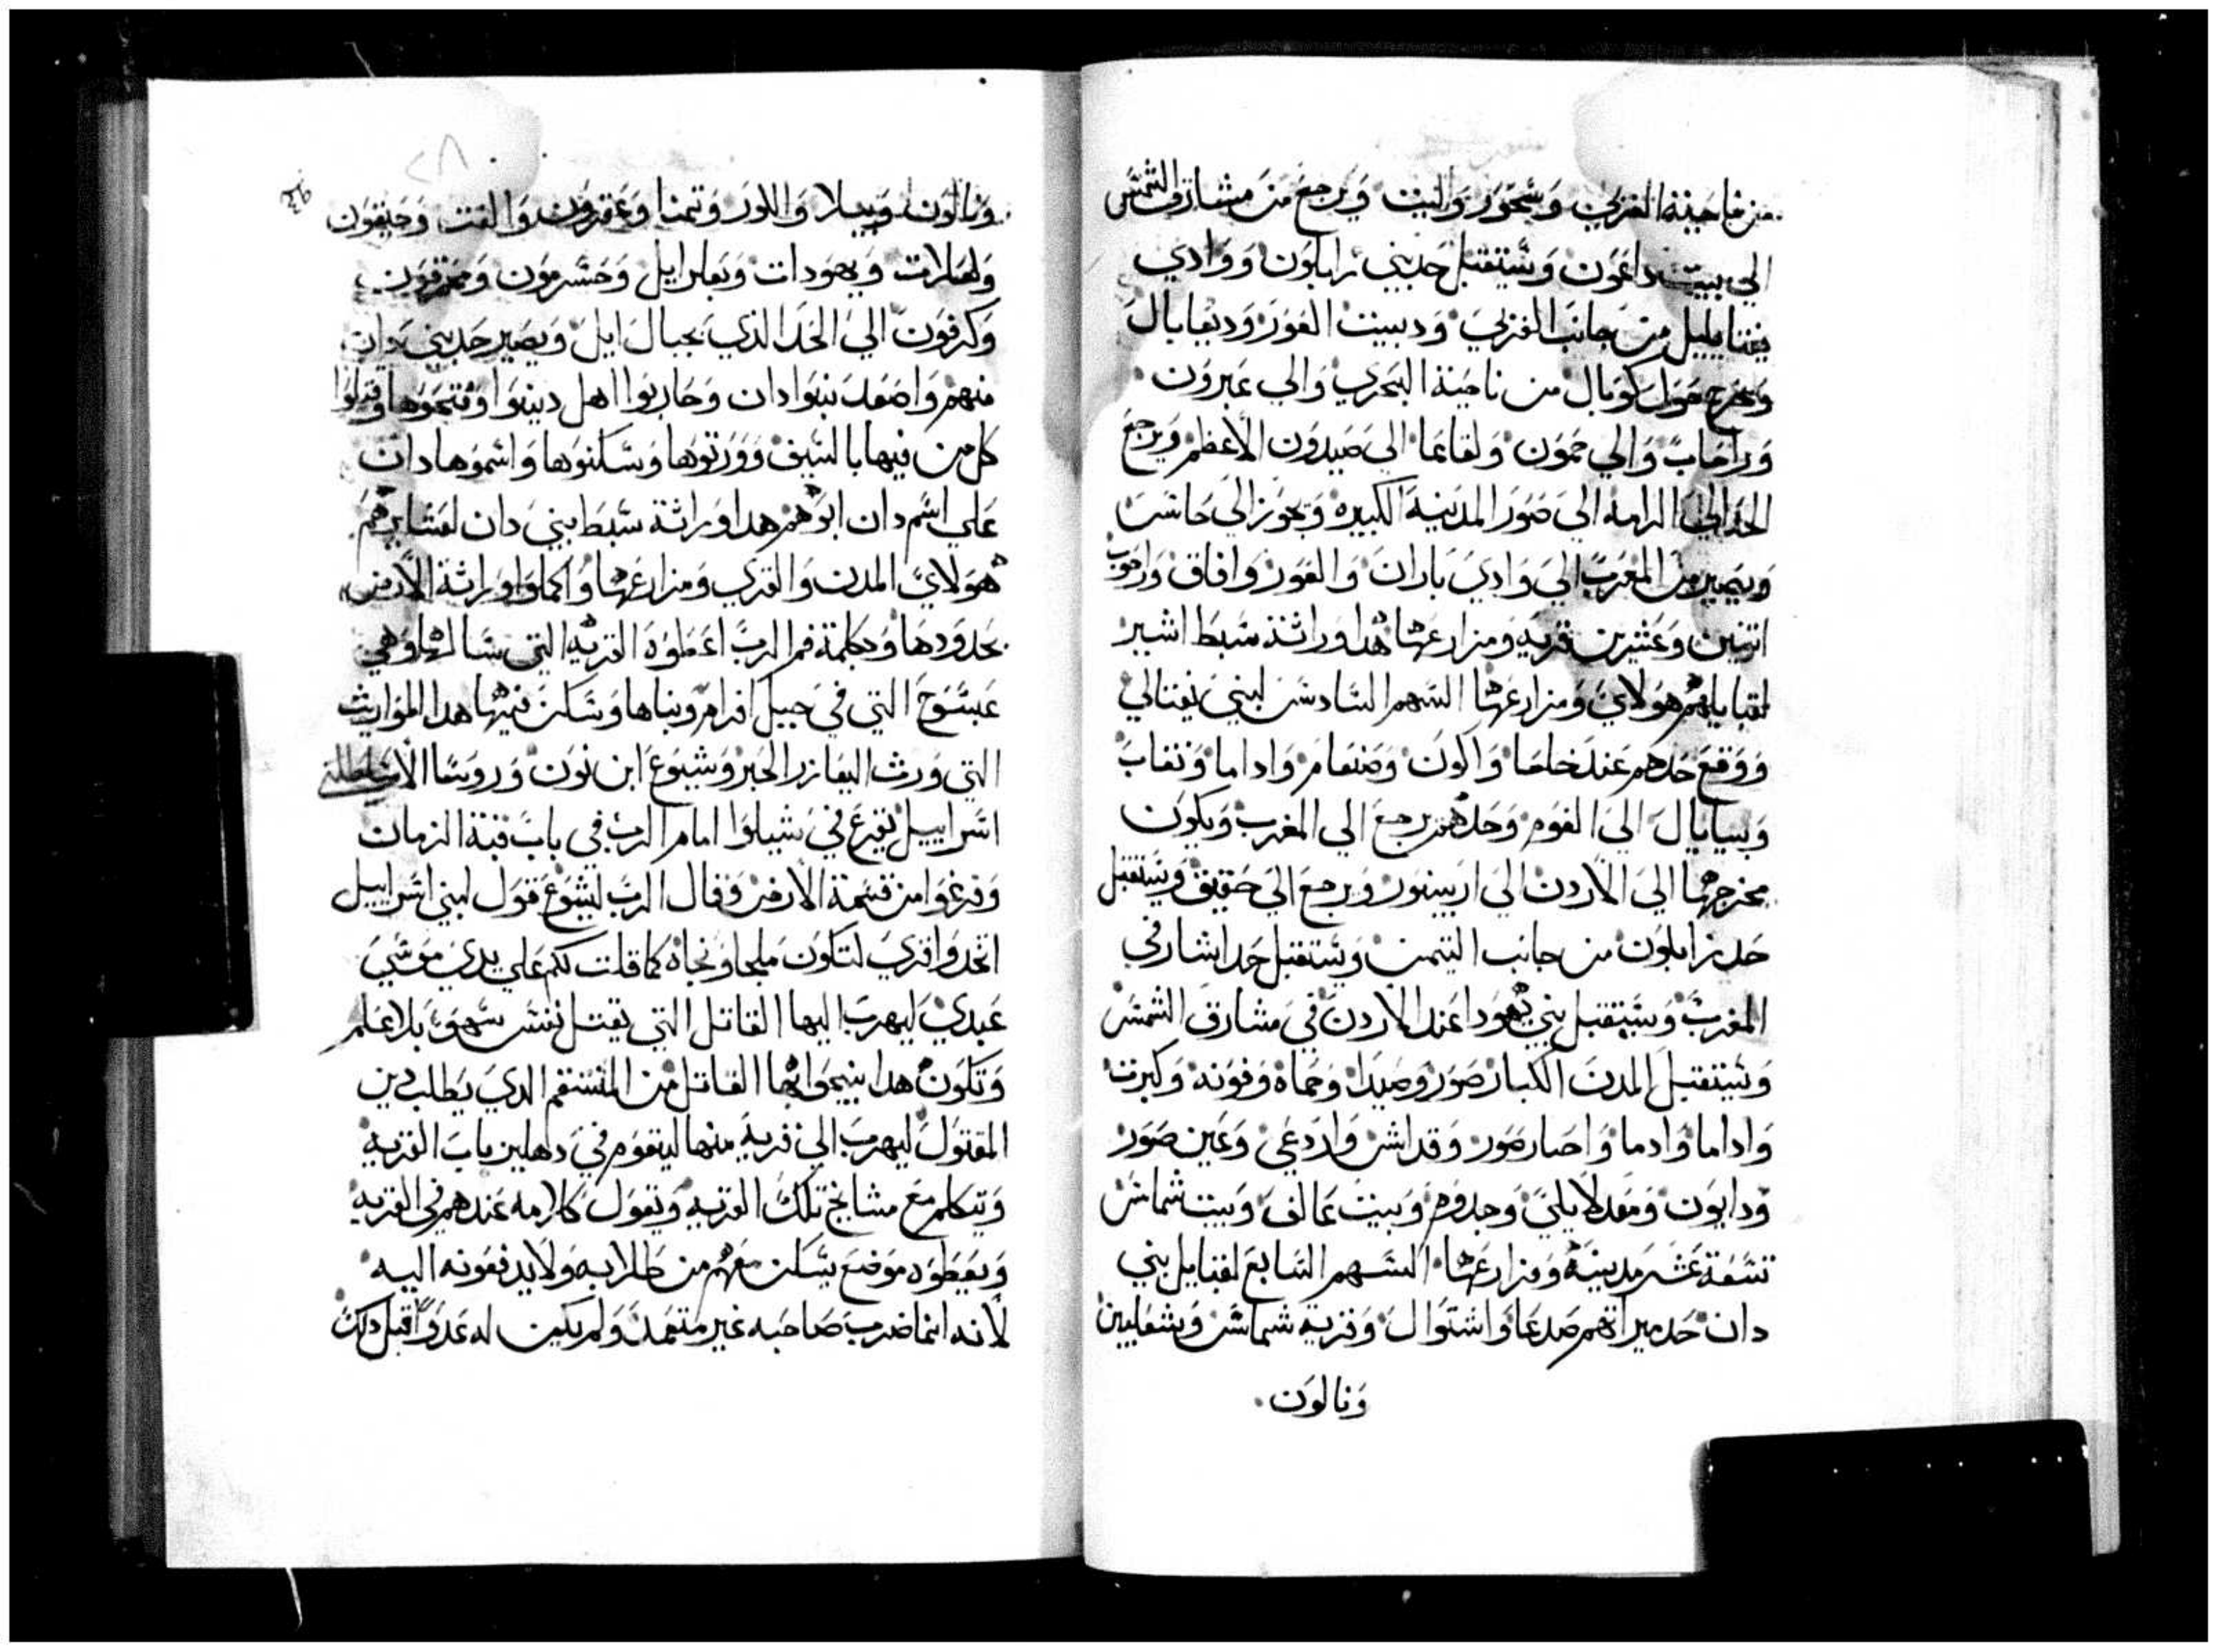 من ناحية الغربي وشحور والبيت ويرجع من مشارق الشمس
الي بيت داغون وستقبل حد بني زابلون ووادي
من جانب الغربي ودبيت الغور ودبعابال
ويخرج حول كومال من ناحية البحري والي عبرون
وراحاب والي حمون ولقاعا الي صيدون الاعظم ويرجع
الحد الي الرامه الي صور المدينة الكبيره ويجوز الي حاسب
ويصير من المغرب الي وادي باران والغور وافاق وراحوب
اتنين وعشرين قريه ومزارعها هدا وراثة سبط اشير
لقبايلهم هولاي ومزارعها السهم السادس لبني نفتالي
ووقع حدهم عند خاحا والون وصنعام واداما ونقاب
وبيايال الي القوم وحدهم يرجع الي المغرب ويكون
مخرجها الي الاردن الي اربينور ويرجع الي حقيق ويستقبل
حد زابلون من جانب التيمن ويستقبل حد اشار في
المغرب وستقبل بني يهودا عند الاردن في مشارق الشمس
وستقبل المدن الكبار صور وصيدا وحماه وفونه وكبرت
واداما وادما واحصار صور وقداش واردعي وعين صور
ودابون ومغدلايلي وحدوم وبيت عالف وبيت شماس
تسعة عشر مدينة ومزارعها السهم السابع لقبايل بني
دان حد ميراتهم صدعا واشتوال وقرية شماس وشعلبين
ونالون
ونالون وبيلا واللور وتمنا وعقرون والفت وحيقون
ولعلات ويهودات وبعلرايل وحسرمون ومرقون
وكرفون الي الحد الذي بحيال ايل ويصير حد بني دان
منهم واصعد بنوا دان وحاربوا اهل دبينوا وفتحوها وقتلوا
كل من فيها بالسيف وورتوها وسكنوها واسموها دان
علي اسم دان ابوهم هدا وراثة سبط بني دان لعشايرهم
هولاي المدن والقري ومزارعها واكملوا وراثة الارض
بحدودها وبكلمة فم الرب اعطوه القريه التي سالها وهي
عبسوح التي في جبيل افرام وبناها وسكن فيها هدا المواريث
التي ورث اليعازر الحبر ويشوع ابن نون وروسا الاسباط لبني
اسراييل بقرع في شيلوا امام الرب في باب قبة الزمان
وفرغوا من قسمة الارض وقال الرب ليشوع قول لبني اسراييل
اتخدوا قري لتكون ملجا ونجاه كما قلت لكم علي يدي موسي
عبدي ليهرب اليها القاتل التي يقتل نفس سهو بلا علم
وتكون هدا ينجوا بها القاتل من المنتقم الدي يطلب دين
المقتول ليهرب الي قريه منها ليقوم في دهليز باب القريه
وتتكلم مع مشايخ تلك القريه ويقول كلامه عندهم في القريه
ويعطوه موضع يسكن معهم من طلابه ولا يدفعونه اليه
لانه انما ضرب صاحبه غير متعمد ولم يكن له عدوا قبل دلك